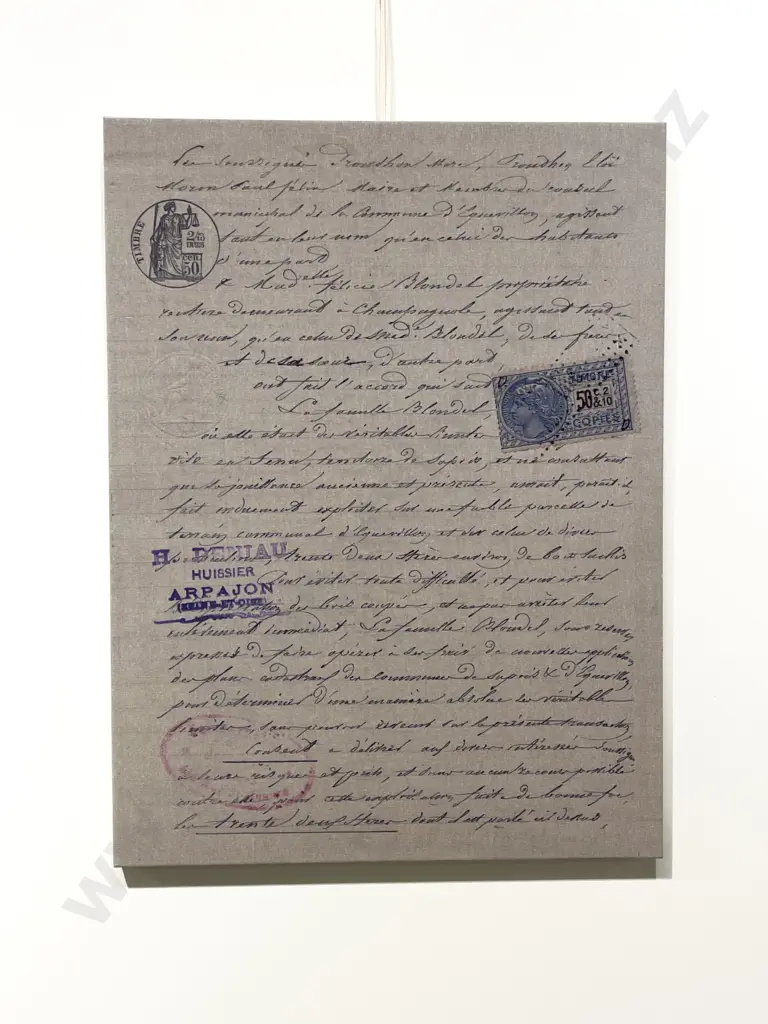 TIMBRE
2/10
EN SUS
50
CEN
Les soussignés Proudhon Marc, Proudhon Eloi
Paul félix, Maire et Membre du conseil
municipal de la Commune d'Equevillon, agissant
tant en leur nom qu'en celui des habitants
d'une part
& Mad elle félicie Blondel propriétaire
rentière demeurant à Champagnole, agissant tant en
son nom, qu'en celui de Med. Blondel, de ses
et de sa sœur, d'autre part,
ont fait l'accord qui suit
La famille Blondel,
50 c 2
&10
COPIES
où elle étant de véritables
en, territoire de Sapois, et ne consultant
que sa jouissance ancienne et présente, aurait, parait-il,
fait indûment exploiter sur une faible parcelle de
terrain communal d'Equevillon, et sur celui de divers
trente deux stères environ, de bois taillis
H. DENIAU
HUISSIER
ARPAJON
(SEINE-ET-OISE)
Pour éviter toute difficulté, et pour éviter
des bois coupés, et ne pas arrêter leur
enlèvement immédiat, La famille Blondel, sous réserve
expresse de faire opérer à ses frais de nouvelles application
des plans cadastraux des communes de Sapois & d'Equevillon,
pour déterminer d'une manière absolue les véritables
limites, sans pouvoir revenir sur la présente transaction
Consent à délivrer aux divers intéressés
à leurs risques et périls, et sans aucun recours possible
contre elle pour cette exploitation faite de bonne foi,
les trente deux stères dont il est parlé ci dessus,